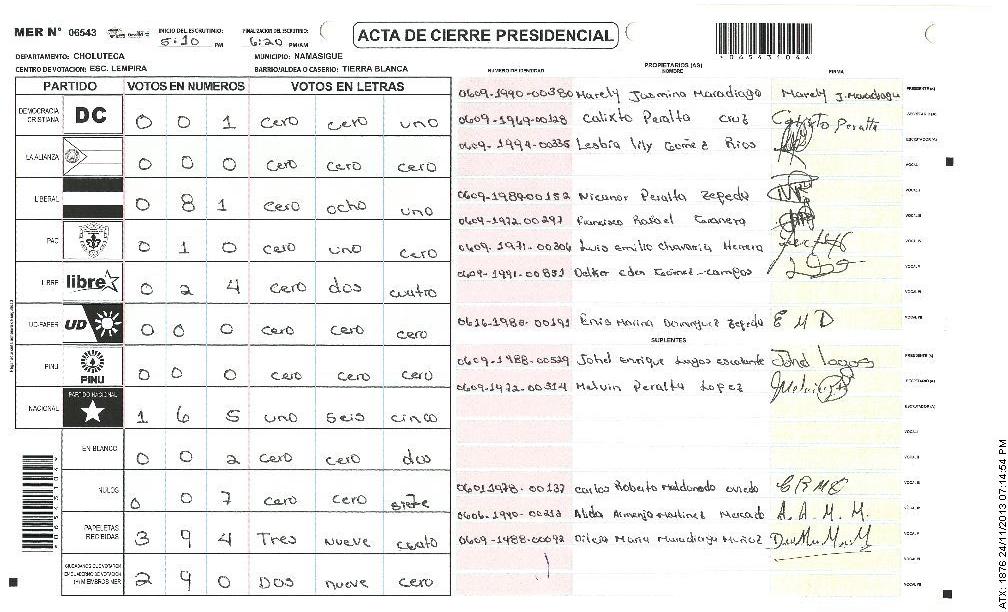 MER N° 06543 INICIO DEL ESCRUTINIO: 5:10 PM FINALIZACION DEL ESCRUTINIO: 6:20 PM/AM ACTA DE CIERRE PRESIDENCIAL
DEPARTAMENTO: CHOLUTECA MUNICIPIO: NAMASIGUE
CENTRO DE VOTACION: ESC. LEMPIRA BARRIO/ALDEA O CASERIO: TIERRA BLANCA
PARTIDO VOTOS EN NUMEROS VOTOS EN LETRAS
DEMOCRACIA CRISTIANA DC 0 0 1 cero cero uno
LA ALIANZA 0 0 0 cero cero cero
LIBERAL 0 8 1 cero ocho uno
PAC 0 1 0 cero uno cero
LIBRE libre 0 2 4 cero dos cuatro
UD-FAPER UD 0 0 0 cero cero cero
PINU PINU 0 0 0 cero cero cero
NACIONAL PARTIDO NACIONAL 1 6 5 uno seis cinco
EN BLANCO 0 0 2 cero cero dos
NULOS 0 0 7 cero cero siete
PAPELETAS RECIBIDAS 3 9 4 Tres nueve cuato
CIUDADANOS QUE VOTARON EN CUADERNO DE VOTACION (+) MIEMBROS MER 2 9 0 Dos nueve cero
PROPIETARIOS (AS)
NUMERO DE IDENTIDAD NOMBRE FIRMA
0609-1990-00380 Marely Jasmina Maradiaga Marely J. Maradiaga PRESIDENTE(A)
0609-1969-00128 Calixto Peralta Cruz Calixto Peralta SECRETARIO(A)
0609-1994-00335 Lesbia lily Gomez Rios ESCRUTADOR(A)
VOCAL I
0609-1989-00152 Nicanor Peralta Zepeda VOCAL II
0609-1972-00297 Francisco Rafael VOCAL III
0609-1971-00306 Luis emilio Chavarria Herrera VOCAL IV
0609-1991-00831 Eden campos VOCAL V
0616-1980-00191 Enia Marina Dominguez Zepeda E M D
SUPLENTES
0609-1988-00529 Johel Enrique Lagos escalante Johel Lagos PRESIDENTE (A)
0609-1972-00314 Melvin Peralta Lopez Melvin SECRETARIO(A)
ESCRUTADOR(A)
VOCAL I
VOCAL II
06011978-00137 Carlos Roberto Maldonado oviedo CRMO
0606-1990-00213 Alida Armenia Martinez Mercado A. A. M. M.
0609-1988-00092 Dilcia Maria Maradiaga Muñoz
0 6 5 4 3 1 0 4 4
ATX: 1876 24/11/2013 07:14:54 PM